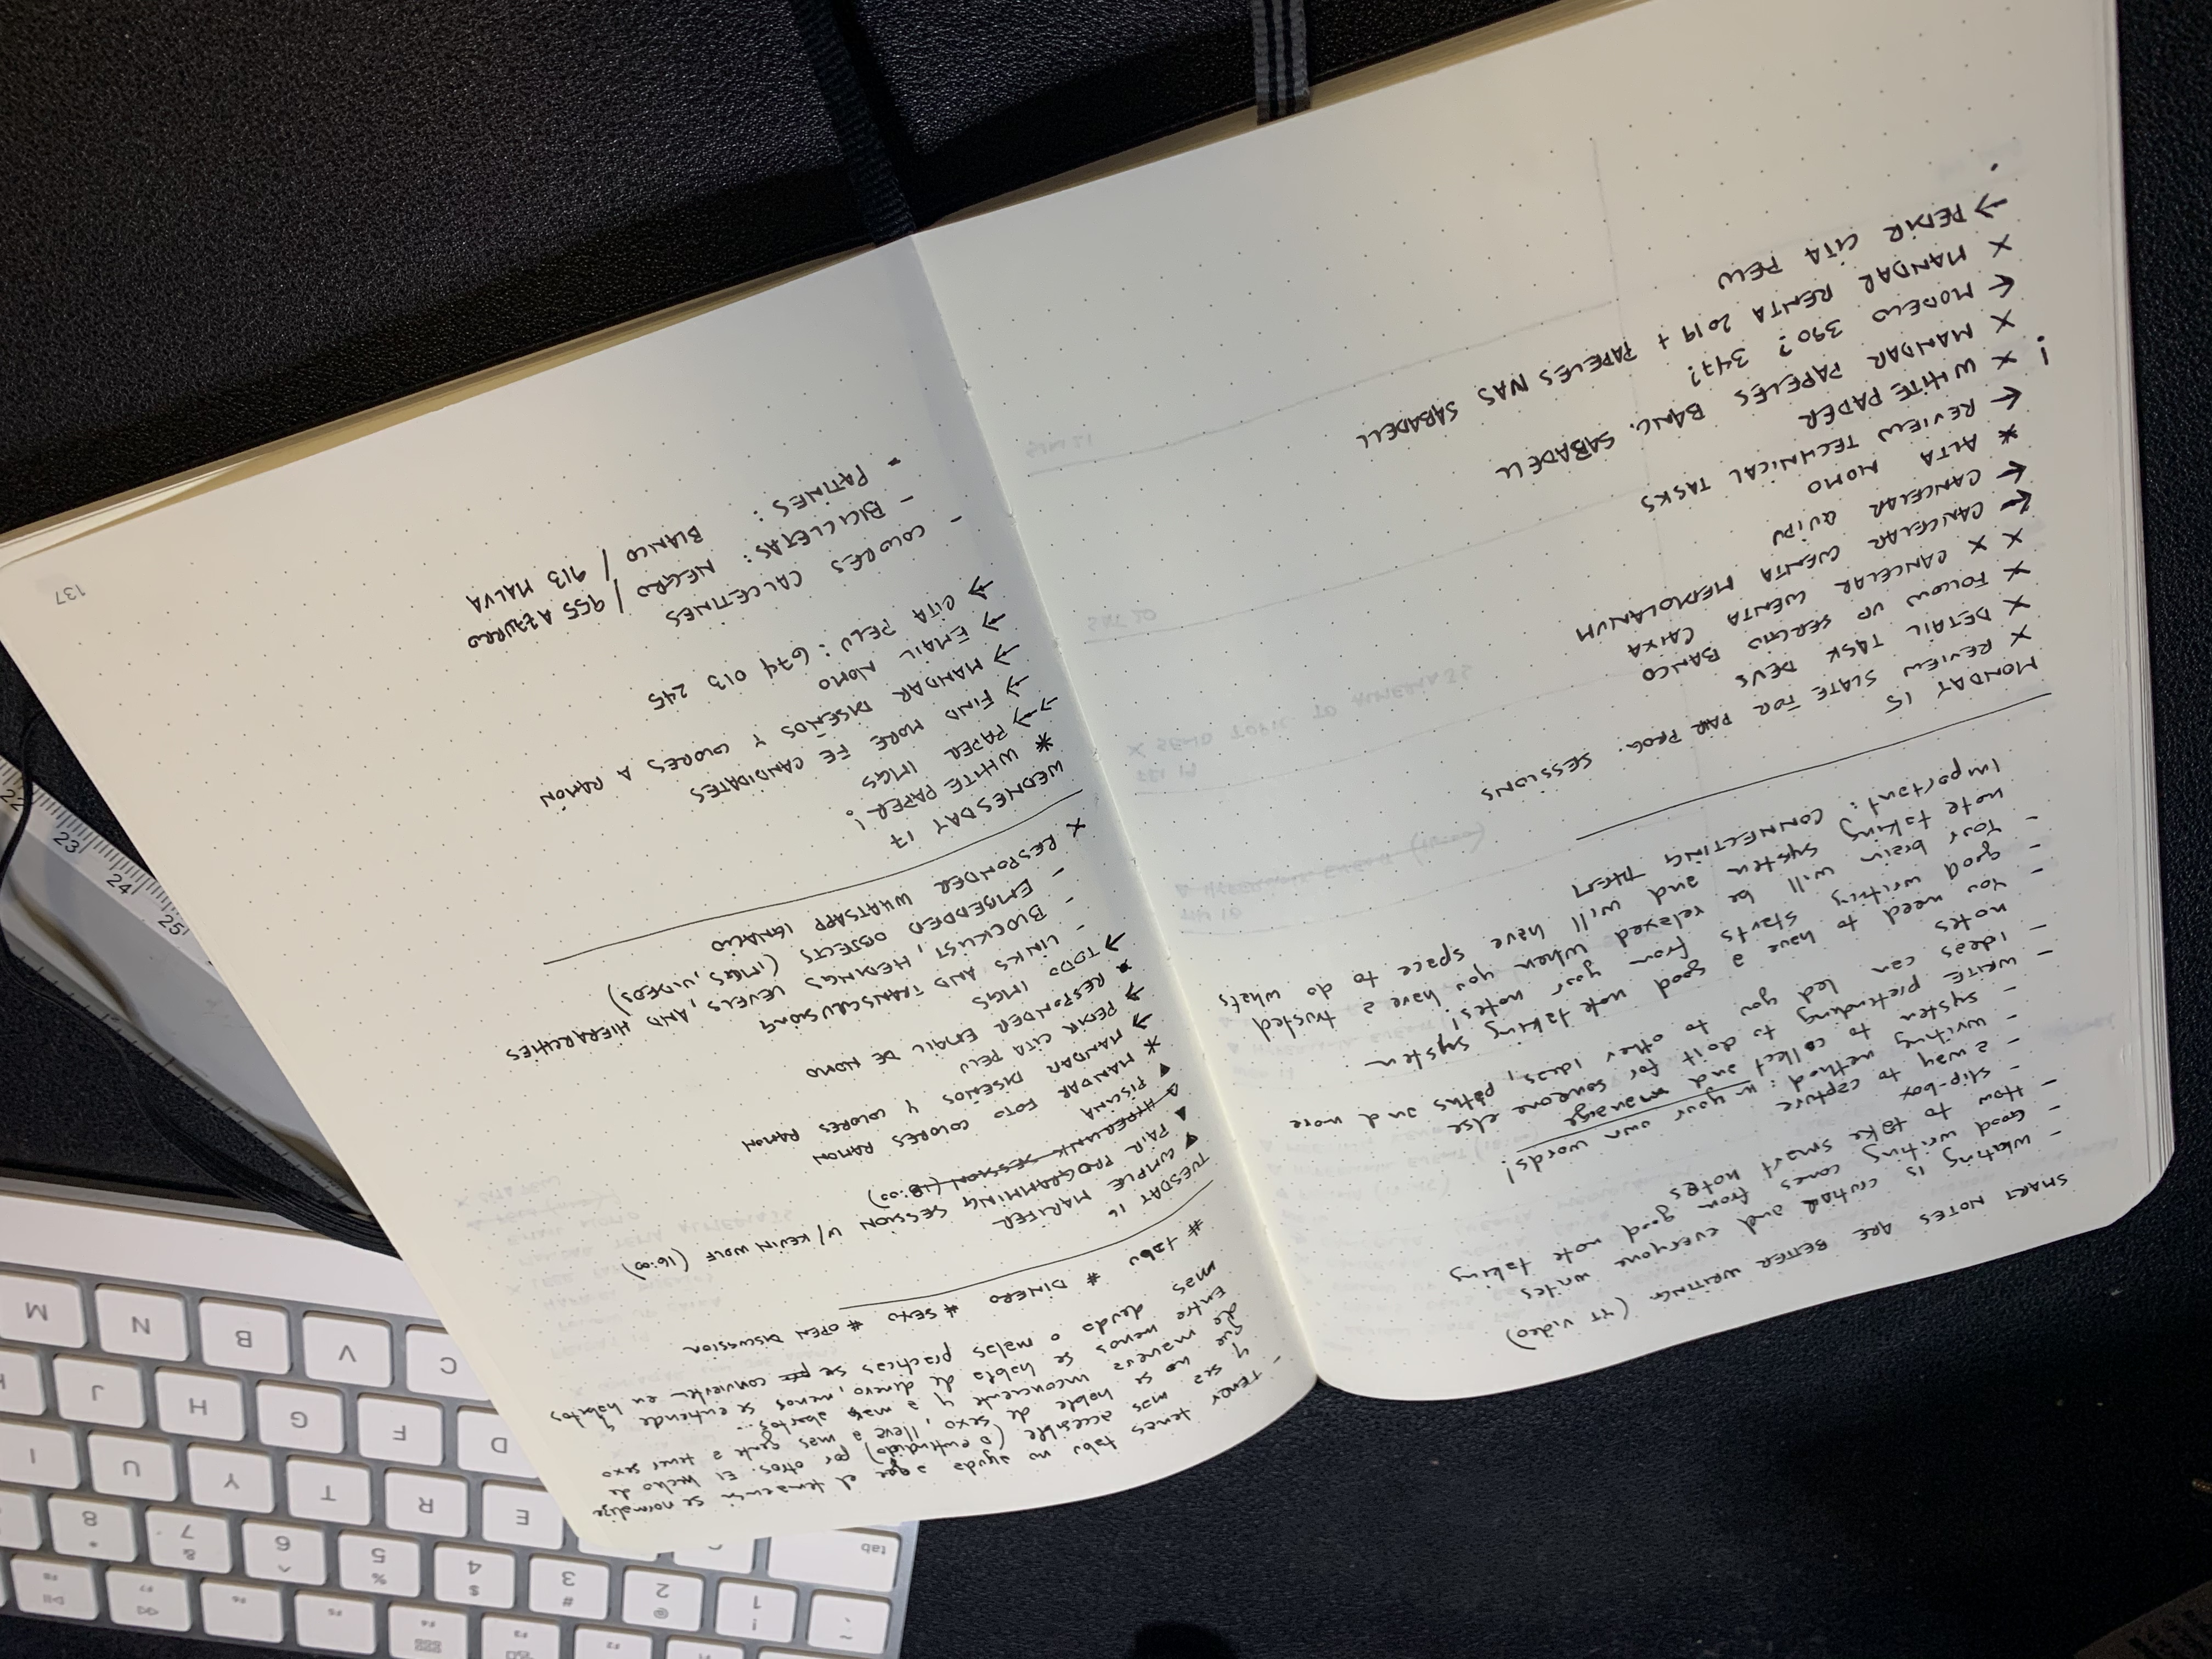 SMART NOTES ARE BETTER WRITING. (YT video)
- Writing is crutial and everyone writes
- Good writing comes from good note taking
- How to take smart notes
- slip-box
- a way to capture
- writing method: in your own words!
- system to collect and manage
- WRITE pretending to do it for someone else
- Ideas can led you to other ideas, paths and more
notes
- You need to have a good note taking system.
- good writing starts from your notes!
- Your brain will be relaxed when you have a trusted
note taking system and will have space to do whats
important: CONNECTING THEM
MONDAY 15
X REVIEW SLATE FOR PAIR PROG. SESSIONS
X DETAIL TASK DEVS
X FOLLOW UP SERGIO BANCO
X X CANCELAR CUENTA CAIXA
← CANCELAR CUENTA MEDIOLANUM
← CANCELAR QUIPU
X ALTA NOMO
← REVIEW TECHNICAL TASKS
! X WHITE PAPER
X MANDAR PAPELES BANC. SABADELL
← MODELO 390? 347?
X MANDAR RENTA 2019 + PAPELES MAS SABADELL
→ PEDIR CITA PELU
- Tener temas tabu no ayuda a que el tema en si se normalize
y sea mas accesible (o entendido) por otros. El hecho de
que no se hable de sexo, lleve a mas gente a tener sexo
de manera inconciente y a mas abortos...
Entre menos se habla de dinero, menos se entiende y
mas deuda o malas practicas se convierten en habitos
# tabu # DINERO # SEXO # OPEN DISCUSSION
TUESDAY 16
CUMPLE MARIFER
▲ PAIR PROGRAMMING SESSION W/ KEVIN WOLF (16:00)
△ HYPERLINK SESSION (18:00)
PISCINA
X MANDAR FOTO COLORES RAMON
→ MANDAR DISEÑOS Y COLORES RAMON
→ PEDIR CITA PELU
RESPONDER EMAIL DE NOMO
→ TODO IMGS
- LINKS AND TRANSCLUSIONS
- BLOCKLIST, HEDINGS LEVELS, AND HIERARCHIES
- EMBEDDED OBJECTS (IMGS, VIDEOS)
X RESPONDER WHATSAPP IGNACIO
WEDNESDAY 17
X WHITE PAPER!
→→ PAPER IMGS
→ FIND MORE FE CANDIDATES
→ MANDAR DISEÑOS Y COLORES A RAMÓN
→ EMAIL NOMO
→ CITA PELU: 674 013 245
- COLORES CALCETINES
- BICICLETAS: NEGRO / 955 AZZURRO
- PATINES: BLANCO / 913 MALVA
137
~ ` ! 1 @ 2 # 3 $ 4 % 5 ^ 6 & 7 * 8
F2 F3 F4 F5 F6 F7 F8
tab E R T Y U I
D F G H J
C V B N M
25 24 23 22